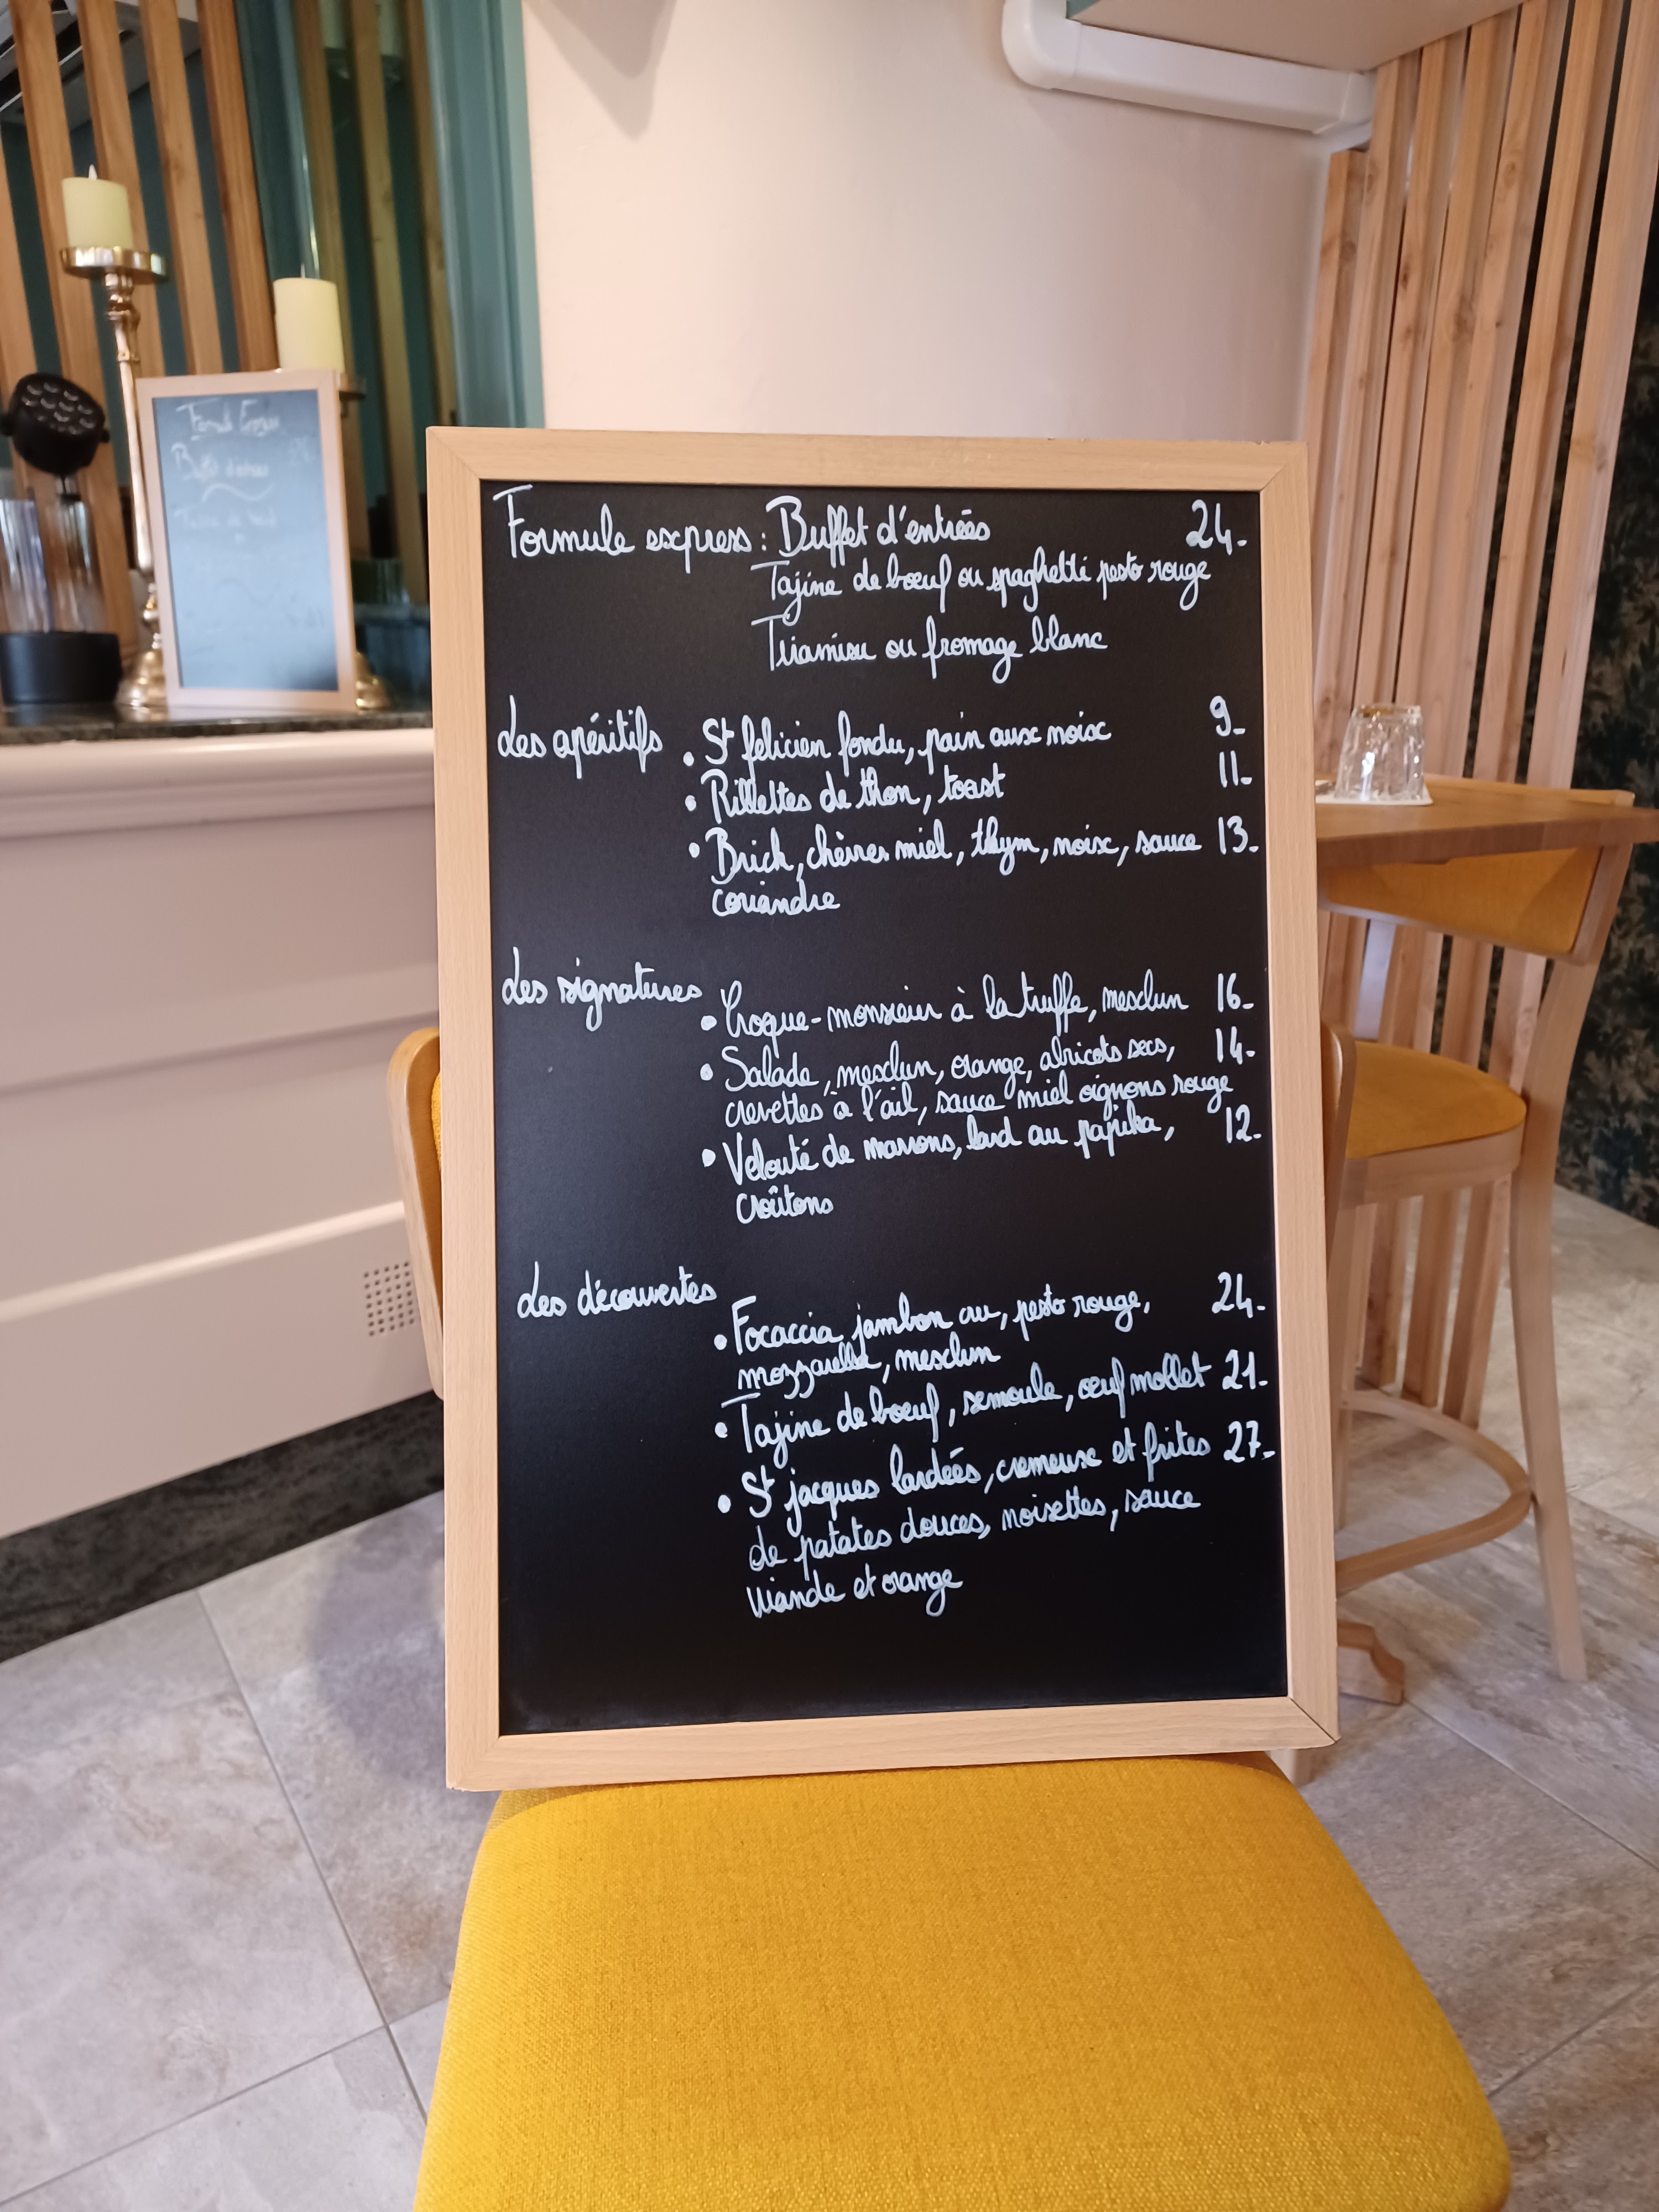 Formule express : Buffet d'entrées 24.
Tajine de bœuf ou spaghetti pesto rouge
Tiiamisu ou fromage blanc
Les apéritifs • St felicien fondu, pain aux noix 9.
• Rillettes de thon, toast 11.
• Brick, chèvres miel, thym, noix, sauce 13.
coriandre
Les signatures
• Croque-monsieur à la truffe, mesclun 16.
• Salade, mesclun, orange, abricots secs, 14.
crevettes à l'ail, sauce miel oignons rouge
• Velouté de marrons, lard au paprika, 12.
croûtons
Les découvertes
• Focaccia jambon cru, pesto rouge, 24.
mozzarella, mesclun
• Tajine de bœuf, semoule, œuf mollet 21.
• St jacques lardées, cremeux et frites 27.
de patates douces, noisettes, sauce
viande et orange
Formule Express
Buffet d'entrées